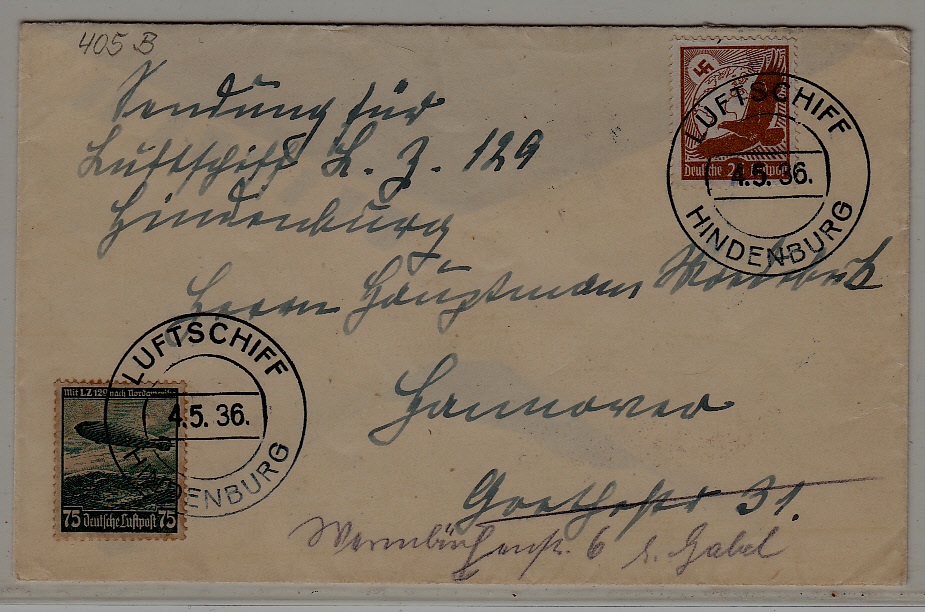 405 B
Sendung für
Luftschiff L. Z. 129
Hindenburg
Herrn Hauptmann
Hannover
Goethestr 31.
6 b. Gabel
Deutsche Luftpost
LUFTSCHIFF
4.5. 36.
HINDENBURG
LUFTSCHIFF
4.5. 36.
HINDENBURG
Mit LZ 129 nach Nordamerika
75 Deutsche Luftpost 75